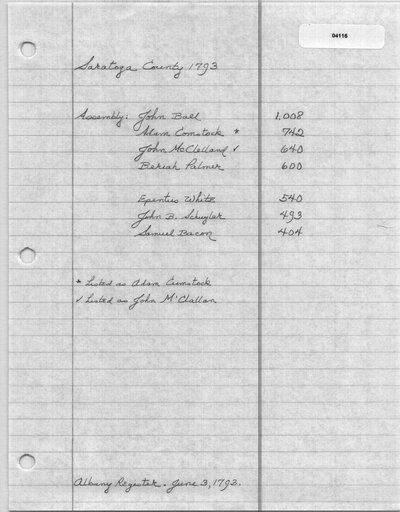 04116
Saratoga County 1793
Assembly: John Ball 1,008
Adam Comstock * 742
John McClelland ✓ 640
Beriah Palmer 600
Epentus White 540
John B. Schuyler 493
Samuel Bacon 404
* Listed as Adam Cumstock
✓ Listed as John McClallan
Albany Register. June 3, 1793.